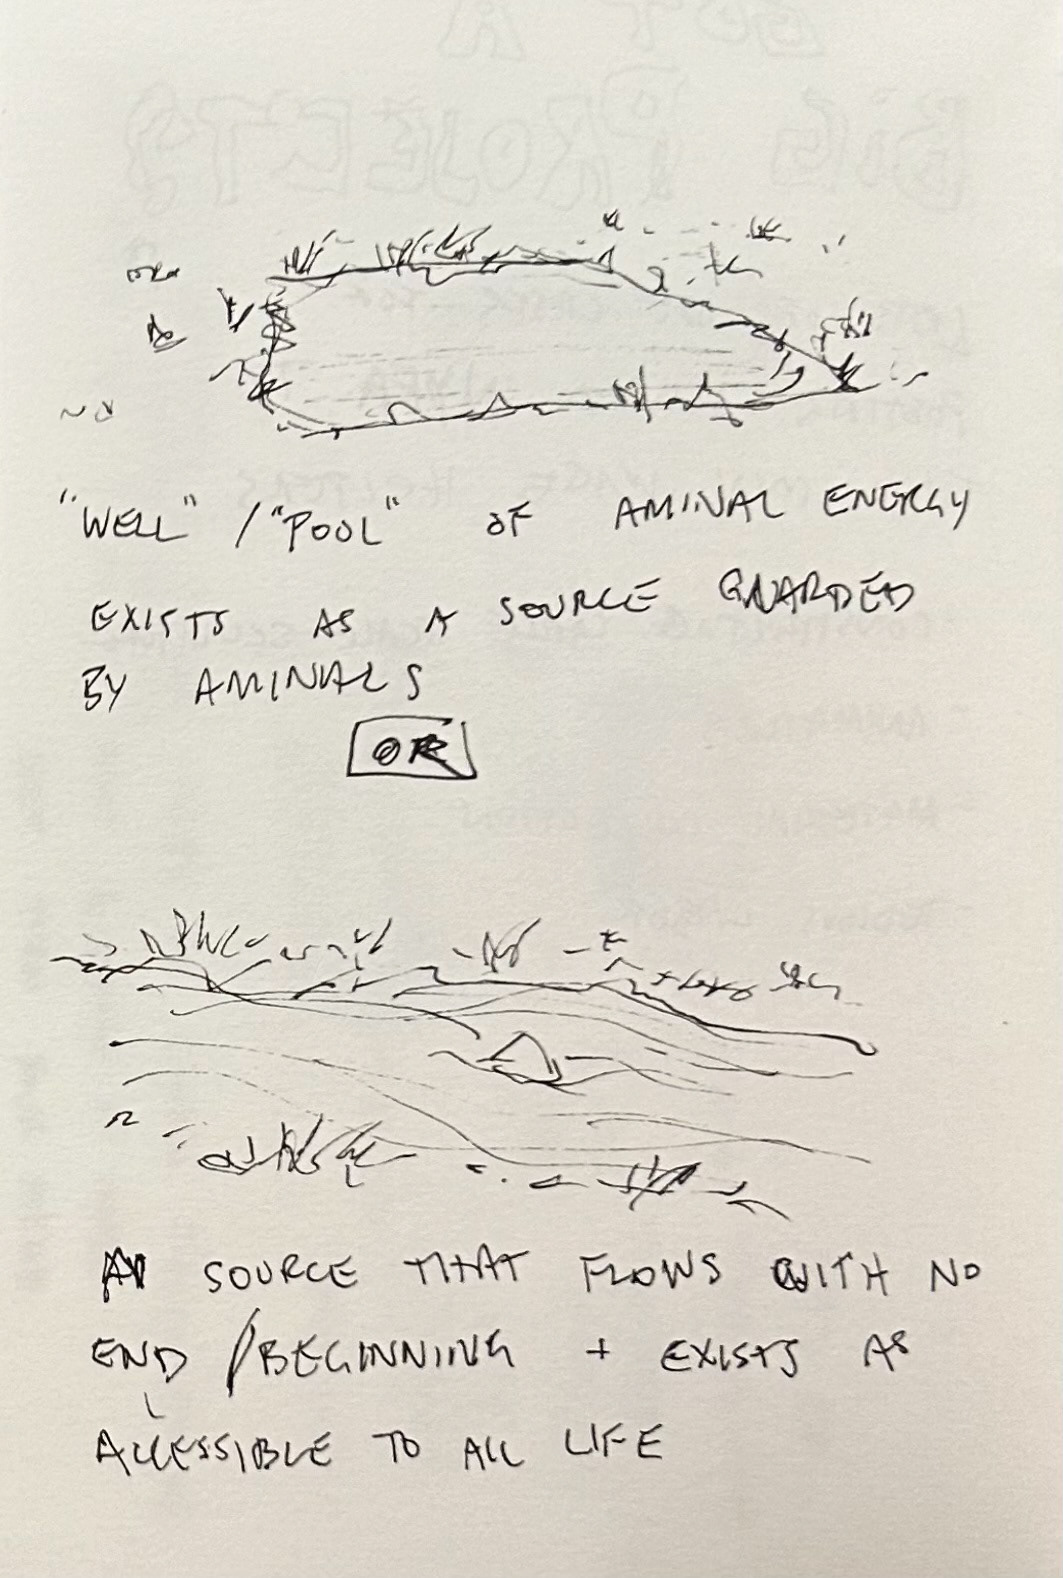 "WELL" / "POOL" OF AMINAL ENERGY
EXISTS AS A SOURCE GUARDED
BY AMINALS
OR
A SOURCE THAT FLOWS WITH NO
END / BEGINNING + EXISTS AS
ACCESSIBLE TO ALL LIFE